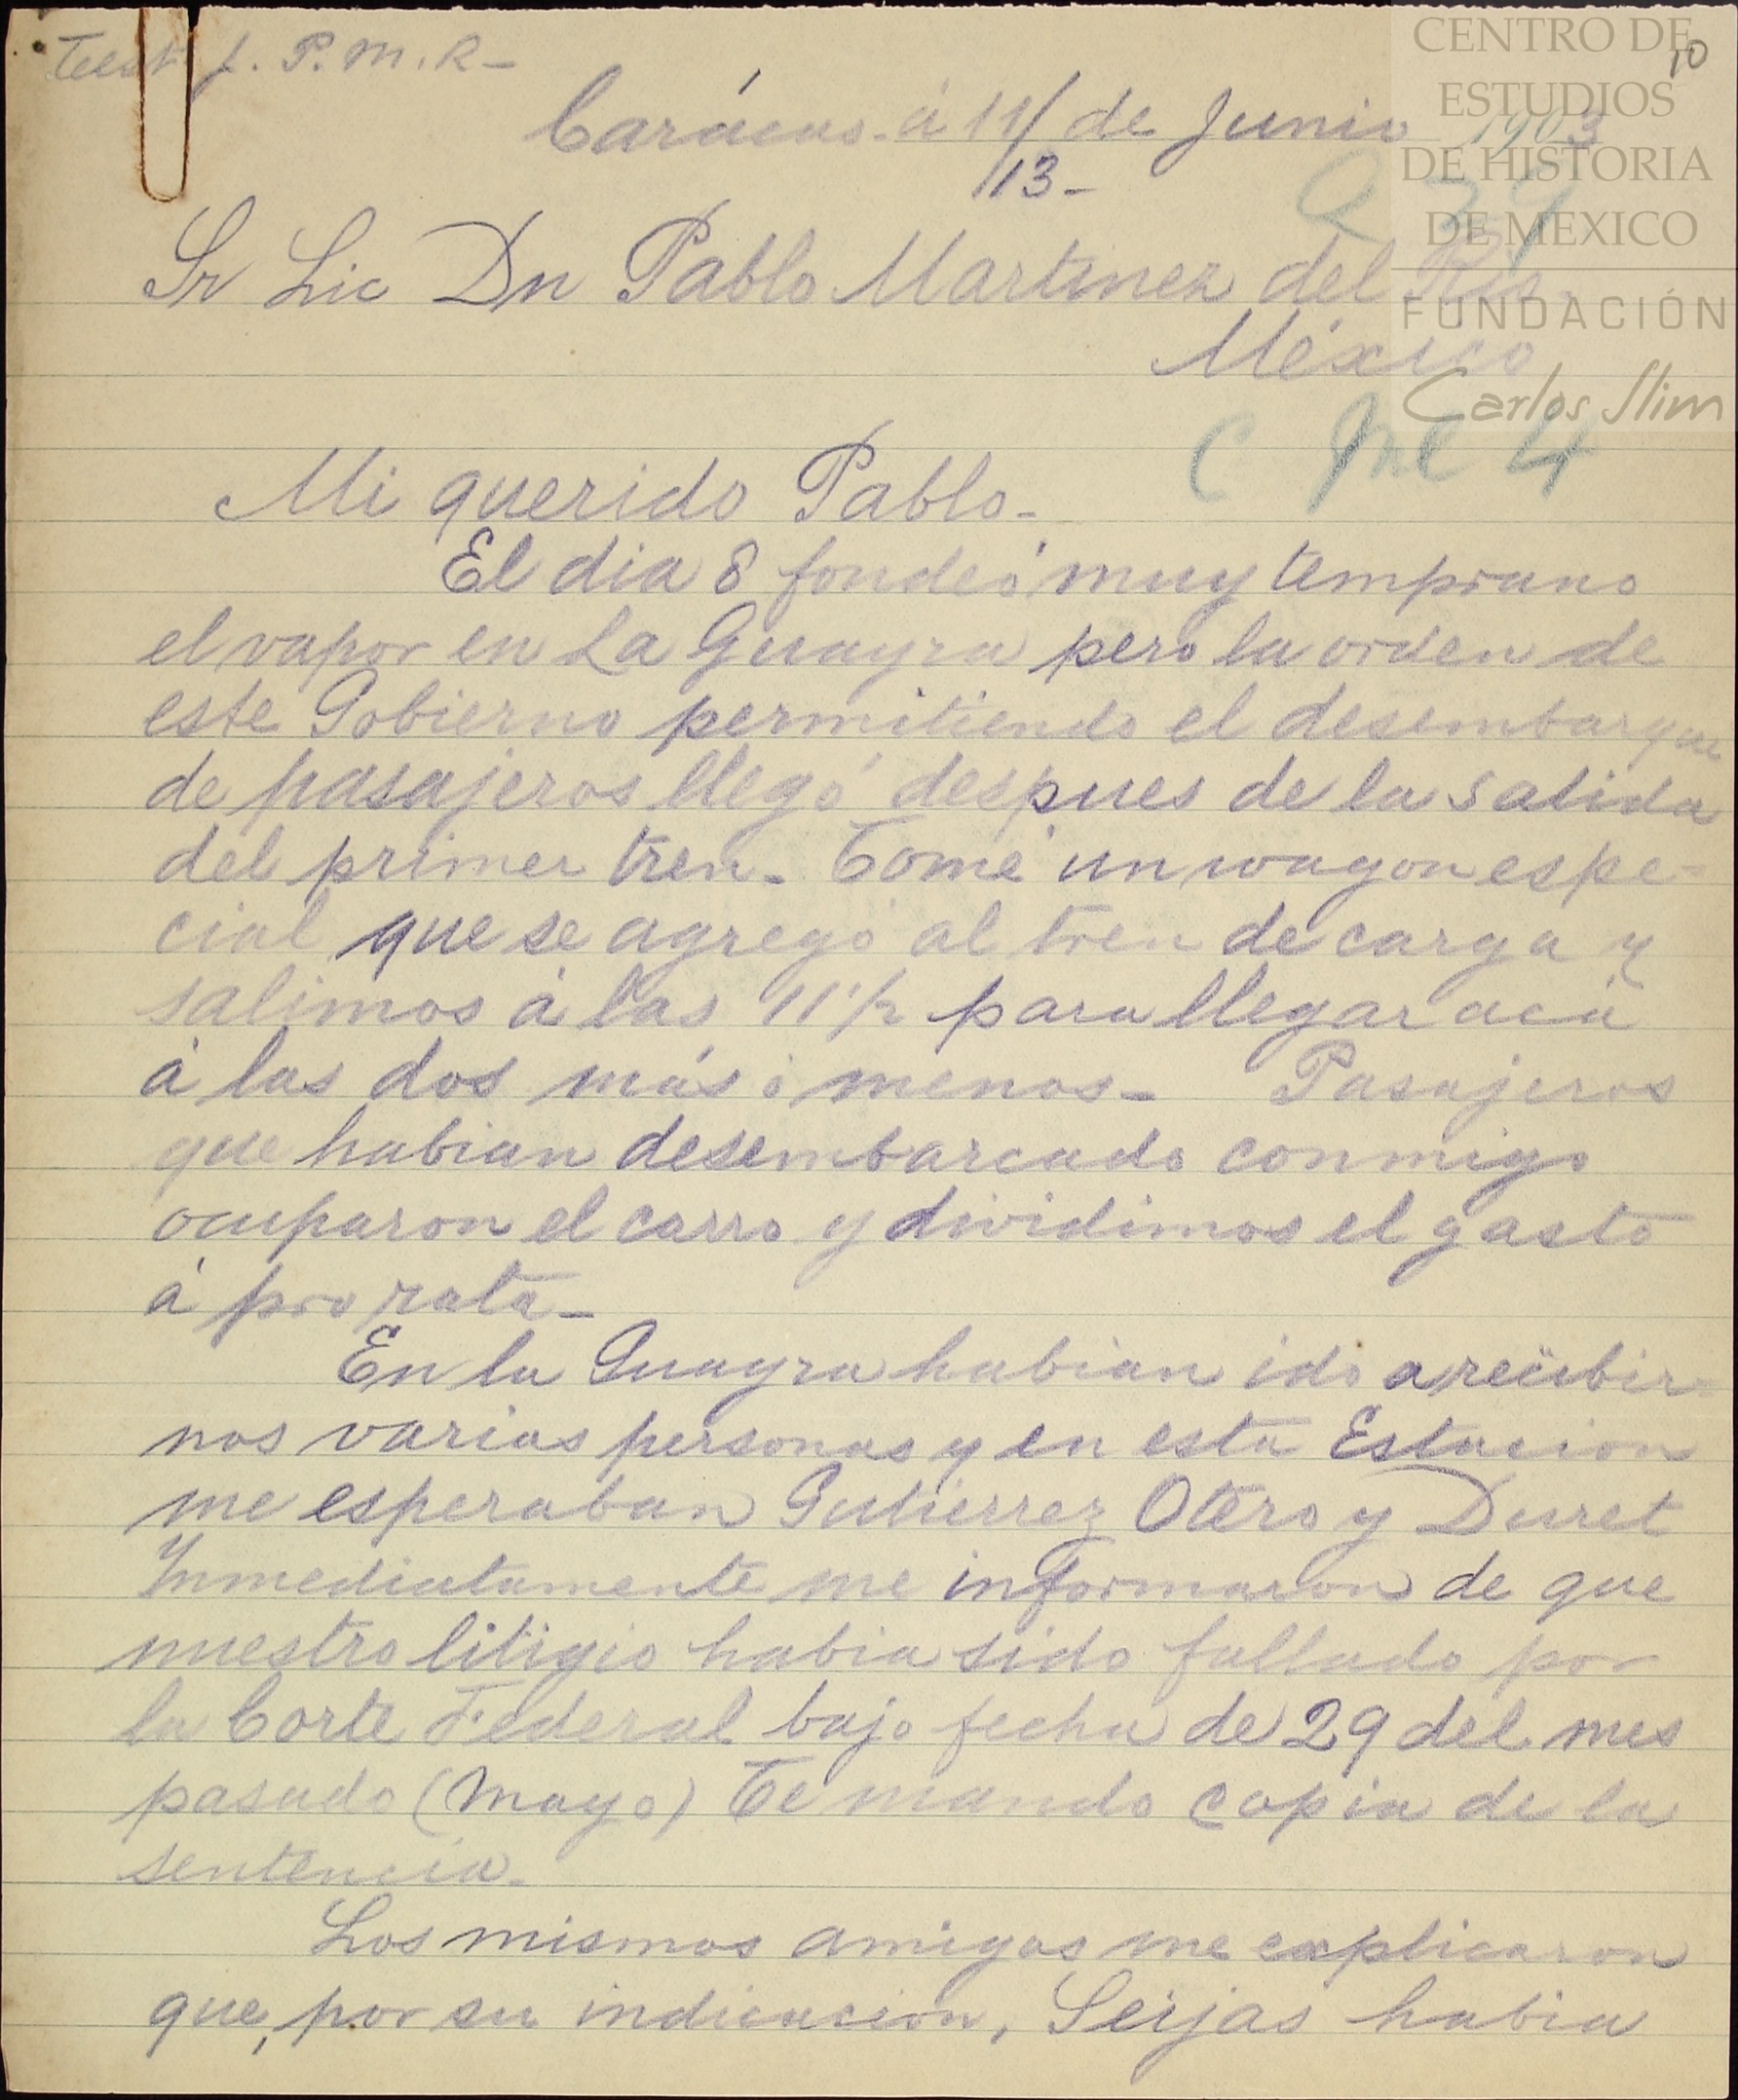 J. P. M. R-
10
CENTRO DE
ESTUDIOS
DE HISTORIA
DE MEXICO
FUNDACIÓN
Carlos Slim
Carácas. á 11/ de Junio 1903
13-
Sr Lic Dn Pablo Martinez del Rio-
México
C
4
Mi querido Pablo-
El dia 8 fondeó muy temprano
el vapor en La Guayra pero la orden de
este Gobierno permitiendo el desembarque
de pasajeros llegó despues de la salida
del primer tren- Tomé un wagon espe-
cial que se agregó al tren de carga y
salimos á las 11 1/2 para llegar acá
á las dos más ó menos- Pasajeros
que habian desembarcado conmigo
ocuparon el carro y dividimos el gasto
á pro rata-
En la Guayra habian ido a recibir-
nos varias personas y en esta Estacion
me esperaban Gutierrez Otero y Duret
Inmediatamente me informaron de que
nuestro litigio habia sido fallado por
la Corte Federal bajo fecha de 29 del mes
pasado (Mayo) Te mando copia de la
sentencia-
Los mismos amigos me explicaron
que, por su indicacion, Seijas habia